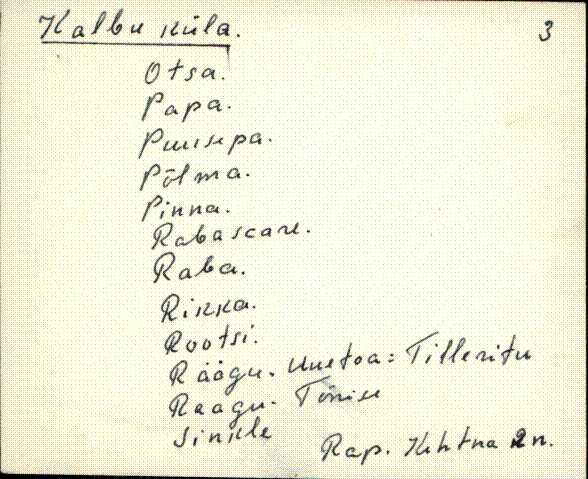 Kalbu küla. 3
Otsa.
Papa.
Puusepa.
Põlma.
Pinna.
Rabasaare.
Raba.
Rikka.
Rootsi.
Räägu. Uuetoa = Tilleritu
Raagu. Tõnise
Sinkle
Rap. Kehtna 2 n.